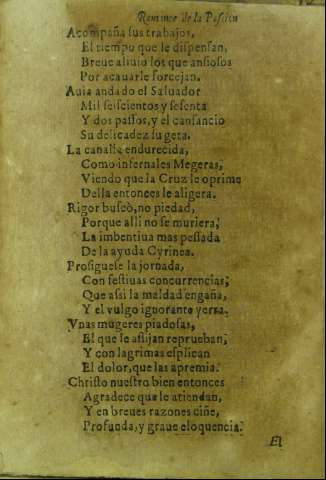 Romance de la Passion
Acompaña sus trabajos,
El tiempo que le dispensan,
Breue aliuio los que ansiosos
Por acauarle forcejan.
Auia andado el Saluador
Mil seiscientos y sesenta
Y dos passos, y el cansancio
Su delicadez sugeta.
La canalla endurecida,
Como infernales Megeras,
Viendo que la Cruz le oprime
Della entonces le aligera.
Rigor buscò, no piedad,
Porque alli no se muriera,
La imbentiua mas pessada
De la ayuda Cyrinea.
Prosiguese la jornada,
Con festiuas concurrencias,
Que assi la maldad engaña,
Y el vulgo ignorante yerra.
Vnas mugeres piadosas,
El que le aflijan reprueban,
Y con lagrimas esplican
El dolor, que las apremia.
Christo nuestro bien entonces
Agradece que le atiendan,
Y en breues razones ciñe,
Profunda, y graue eloquencia.
El